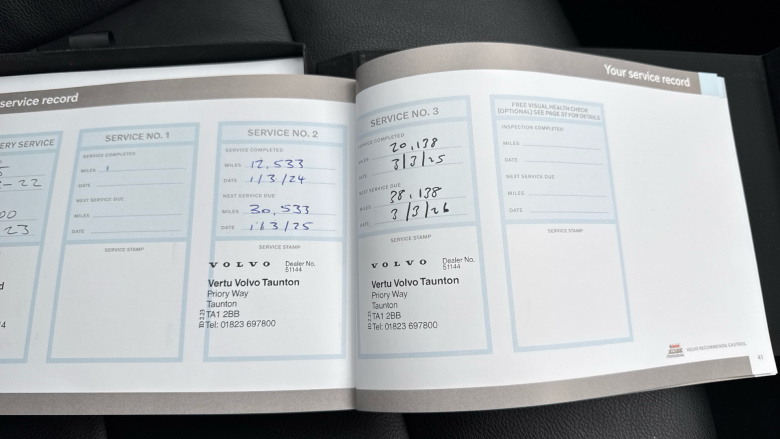 service record
ERY SERVICE
-22
00
23
d
4
SERVICE NO. 1
SERVICE COMPLETED
MILES
DATE
NEXT SERVICE DUE
MILES
DATE
SERVICE STAMP
SERVICE NO. 2
SERVICE COMPLETED
MILES 12,533
DATE 1/3/24
NEXT SERVICE DUE
MILES 30,533
DATE 1/3/25
SERVICE STAMP
VOLVO Dealer No.
51144
Vertu Volvo Taunton
Priory Way
Taunton
TA1 2BB
Tel: 01823 697800
Your service record
SERVICE NO. 3
SERVICE COMPLETED
MILES 20,138
DATE 3/3/25
NEXT SERVICE DUE
MILES 38,138
DATE 3/3/26
SERVICE STAMP
VOLVO Dealer No.
51144
Vertu Volvo Taunton
Priory Way
Taunton
TA1 2BB
Tel: 01823 697800
FREE VISUAL HEALTH CHECK
(OPTIONAL) SEE PAGE 37 FOR DETAILS
INSPECTION COMPLETED
MILES
DATE
NEXT SERVICE DUE
MILES
DATE
SERVICE STAMP
VOLVO RECOMMENDS CASTROL
41